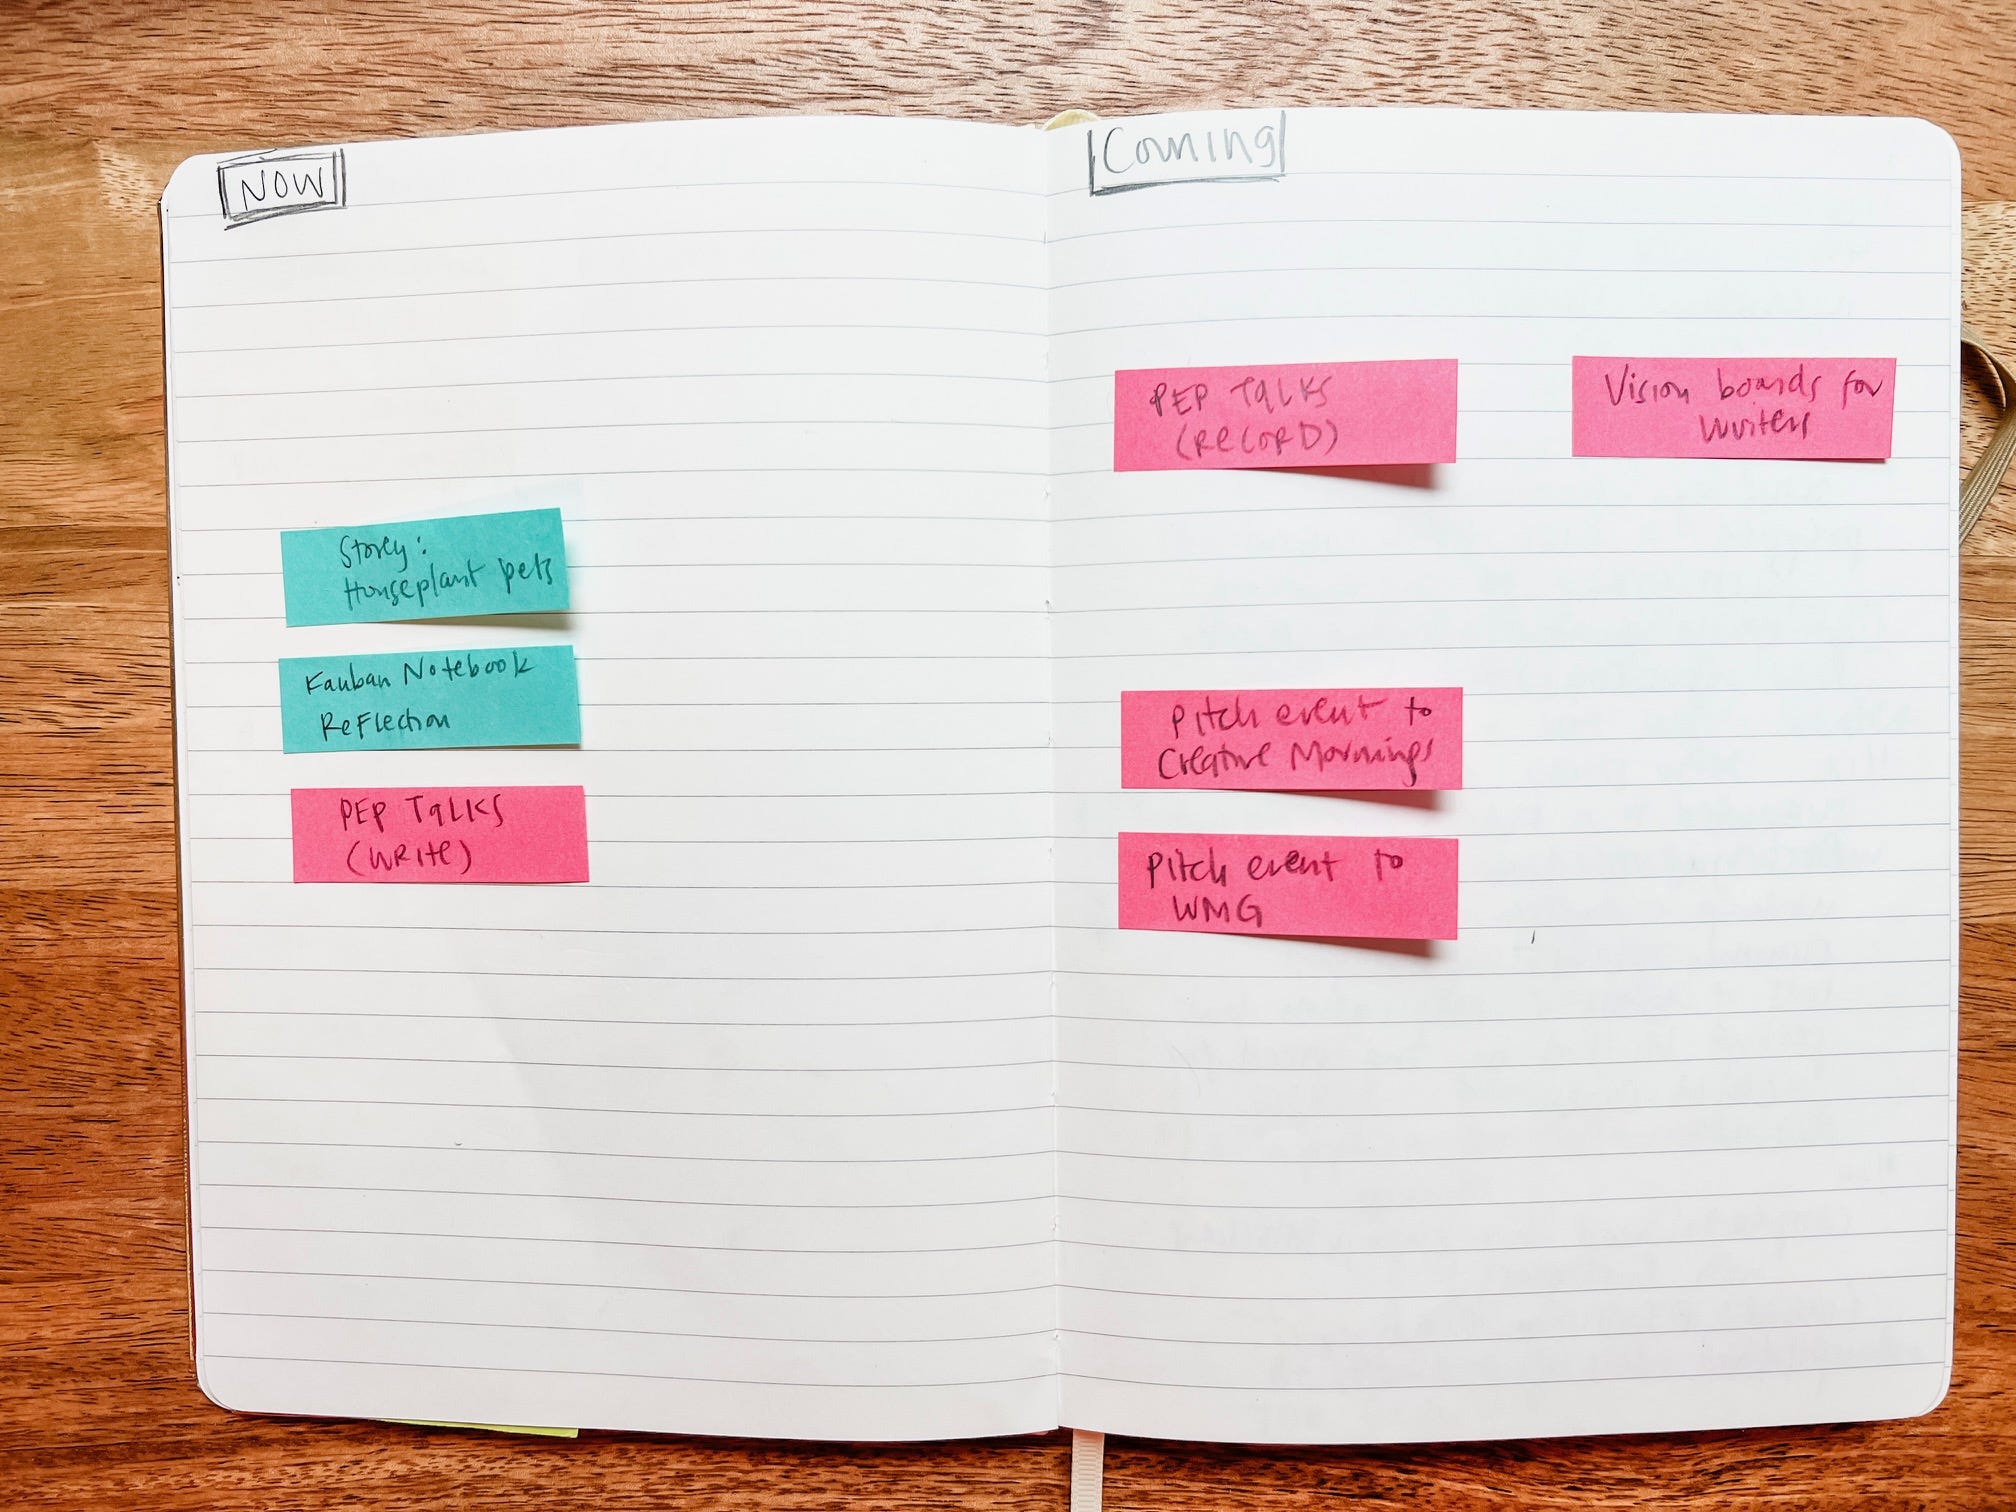 NOW
Story:
Houseplant pets
Kanban Notebook
Reflection
PEP TALKS
(WRITE)
Coming
PEP TALKS
(RECORD)
Vision boards for
Writers
Pitch event to
Creative Mornings
Pitch event to
WMG